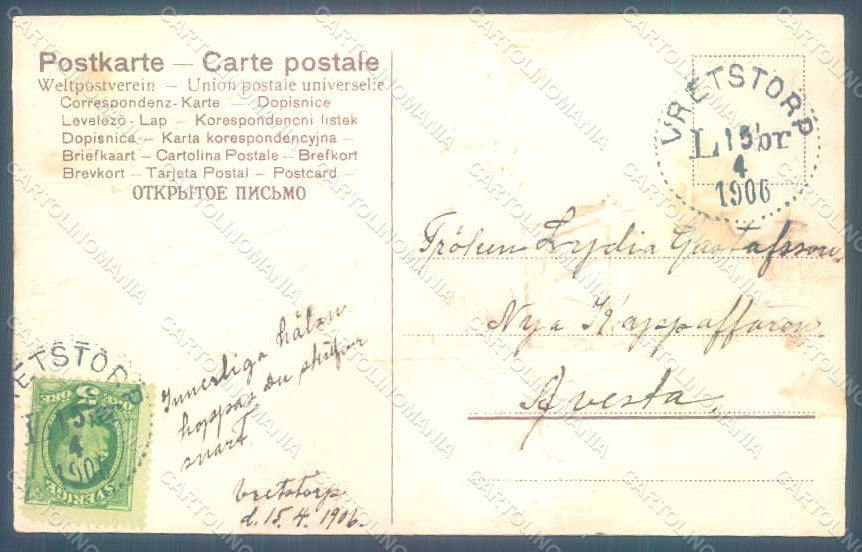 Postkarte — Carte postale
Weltpostverein — Union postale universelle.
Correspondenz-Karte — Dopisnice
Levelező-Lap — Korespondencni listek
Dopisnica — Karta korespondencyjna —
Briefkaart — Cartolina Postale — Brefkort
Brevkort — Tarjeta Postal — Postcard —
ОТКРЫТОЕ ПИСЬМО
VRETSTORP
15
4
1906
Fröken Lydia Gustafsson
Nya Kappaffären
Avesta
Innerliga hälsn
hoppas du skrifver
snart
Vretstorp
d. 15. 4. 1906.
RETSTORP
4
190
5 ÖRE
SVERIGE
CARTOLINOMANIA